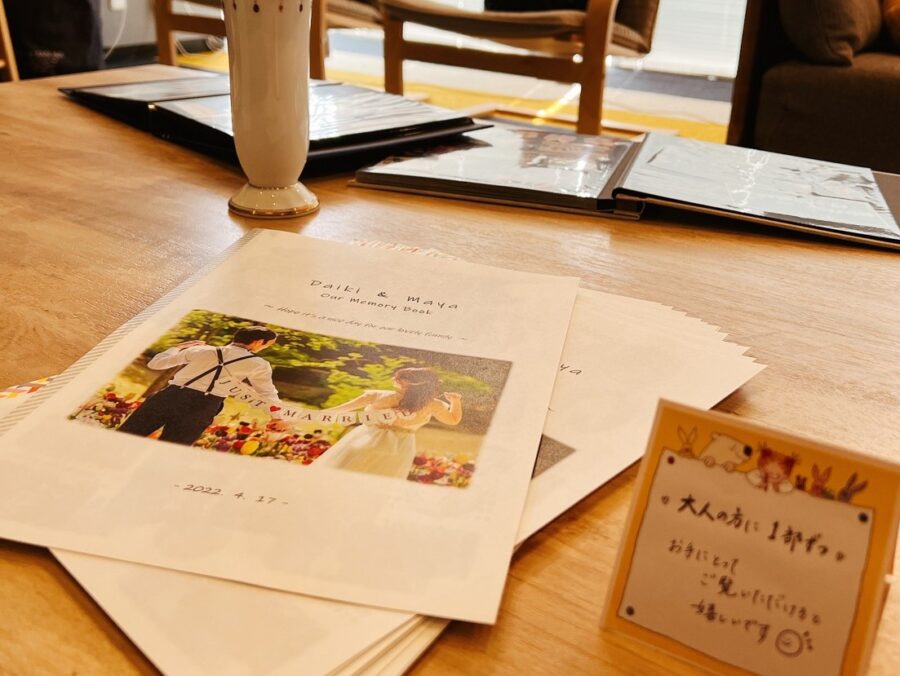 Daiki & Maya
Our Memory Book
~ Hope it's a nice day for our lovely family ~
JUST MARRIED
- 2022. 4. 17 -
ya
大人の方に 1部ずつ
お手にとって
ご覧いただけると
嬉しいです